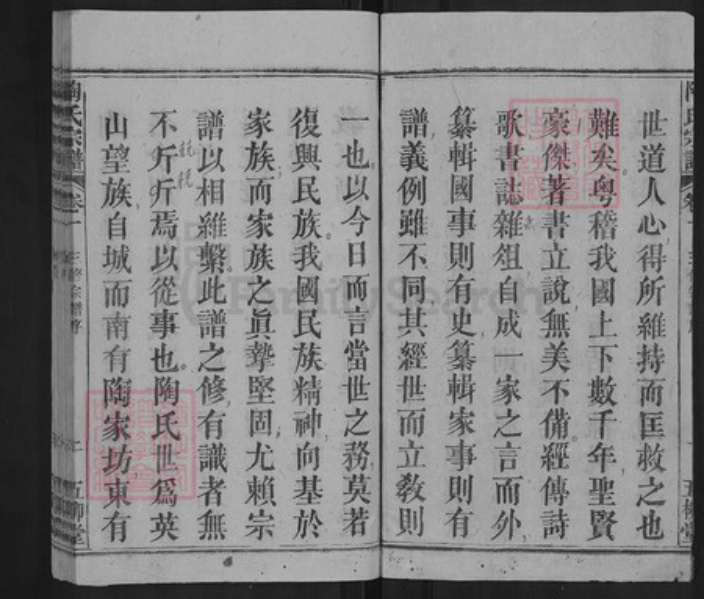 世道人心得所維持而匡救之也
難矣粵稽我國上下數千年聖賢
豪傑著書立說無美不備經傳詩
歌書誌雜俎自成一家之言而外
纂輯國事則有史纂輯家事則有
譜義例雖不同其經世而立敎則
一也以今日而言當世之務莫若
復興民族我國民族精神向基於
家族而家族之眞摯堅固尤賴宗
譜以相維繫此譜之修有識者無
不斤斤焉以從事也陶氏世爲英
山望族自城而南有陶家坊東有
陶氏宗譜 卷一 三修宗譜序 五柳堂
FamilySearch